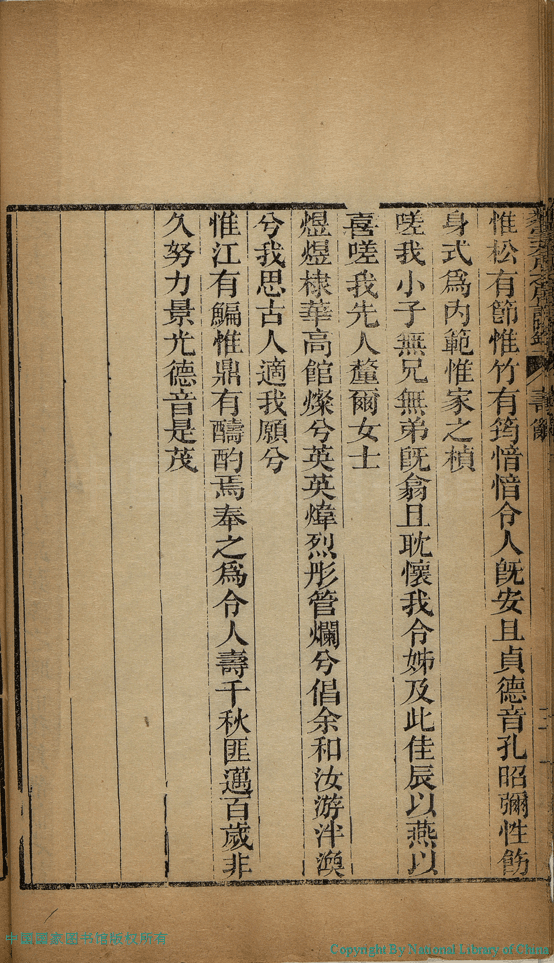 惟松有節惟竹有筠愔愔令人旣安且貞德音孔昭彌性飭
身式爲内範惟家之楨
嗟我小子無兄無弟旣翕且耽懷我令姊及此佳辰以燕以
喜嗟我先人釐爾女士
煜煜棣華高館燦兮英英煒烈彤管爛兮倡余和汝游泮渙
兮我思古人適我願兮
惟江有鯿惟鼎有醻酌焉奉之爲令人壽千秋匪邁百歲非
久努力景光德音是茂
中國國家图书馆版权所有
Copyright By National Library of China